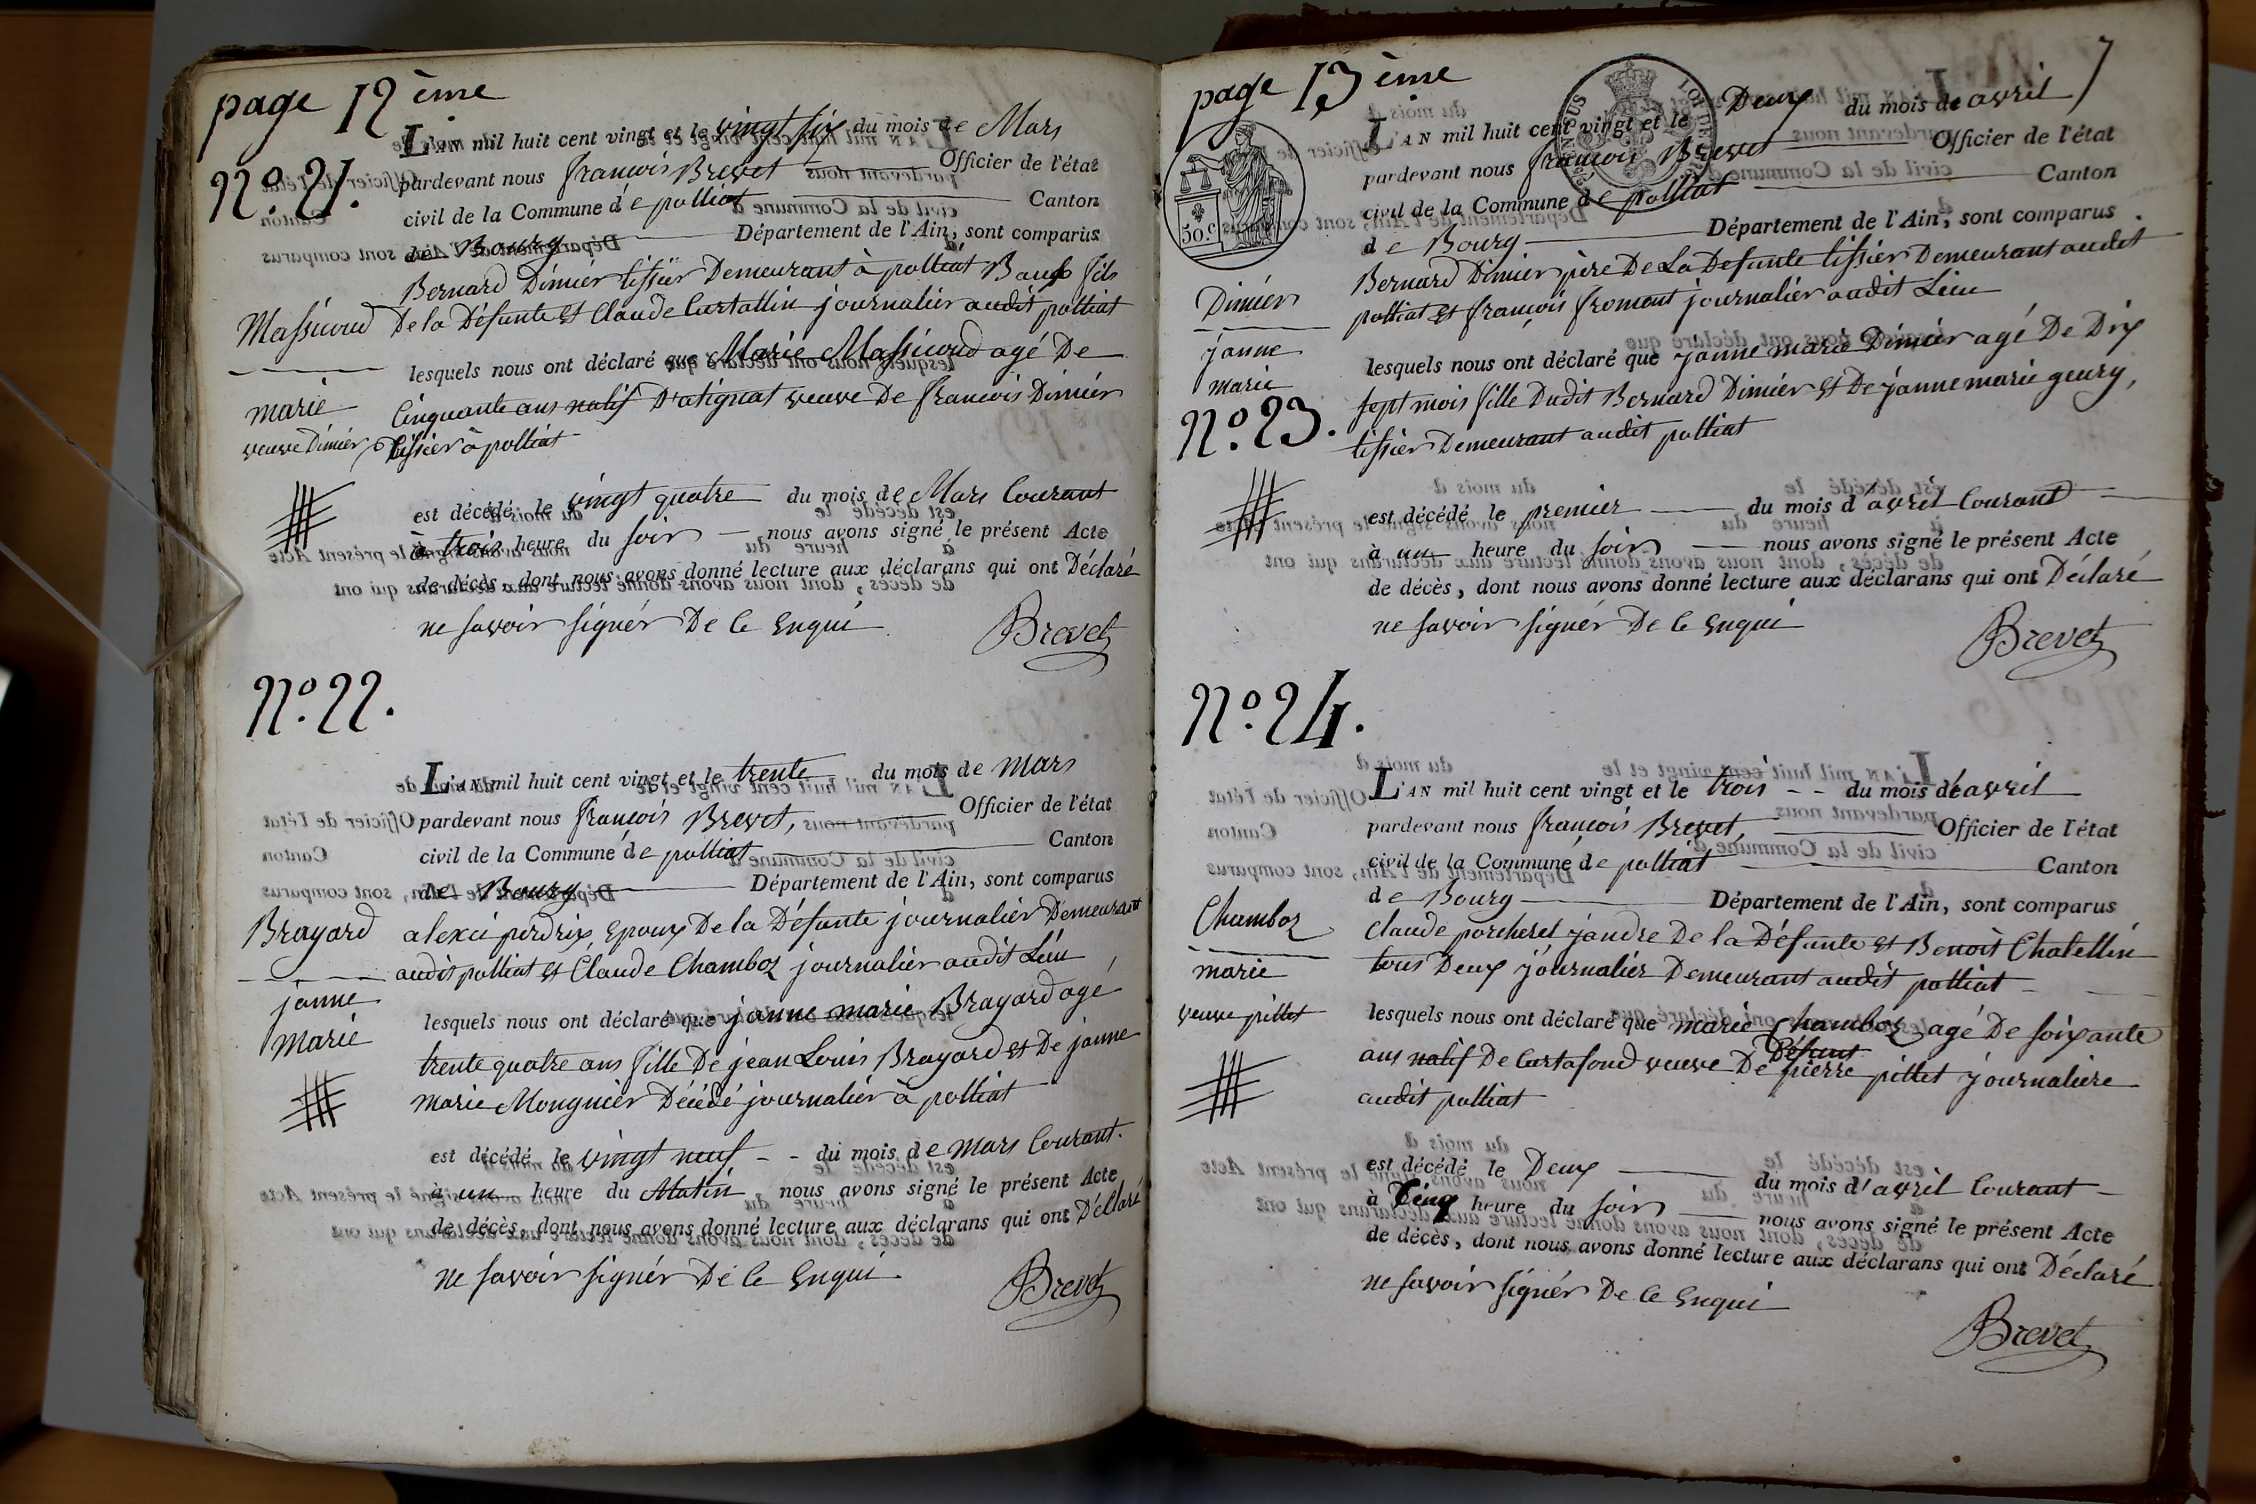 page 12 ème
L'AN mil huit cent vingt et le vingt six du mois de Mars
N.º 21.
pardevant nous françois Brevet Officier de l'état
civil de la Commune de polliat Canton
de Bourg Département de l'Ain, sont comparus
Bernard Dimier tissier Demeurant à polliat Beaux fils
Massicoud
De la Défunte et Claude Curtallin journalier audit polliat
lesquels nous ont déclaré que Marie Massicoud agé De
marie
Cinquante ans natif D'atignat veuve De francois Dimier
veuve Dimier
tissier à polliat
est décédé le vingt quatre du mois de Mars Courant
à trois heure du soir nous avons signé le présent Acte
de décès, dont nous avons donné lecture aux déclarans qui ont Déclaré
ne savoir signér De Ce Enqui
Brevet
N.º 22.
L'AN mil huit cent vingt et le trente du mois de mars
pardevant nous françois Brevet, Officier de l'état
civil de la Commune de polliat Canton
de Bourg Département de l'Ain, sont comparus
Brayard
alexci perdrix Epoux De la Défunte journalier Demeurant
audit polliat et Claude Chamboz journalier audit Lieu
janne
lesquels nous ont déclaré que janne marie Brayard agé
Marie
trente quatre ans fille De jean Louis Brayard et De janne
marie Mongnier Décédé journalier à polliat
est décédé le vingt neuf - - du mois de mars Courant.
à un heure du Matin nous avons signé le présent Acte
de décès, dont nous avons donné lecture aux déclarans qui ont Déclaré
ne savoir signér De Ce Enqui
Brevet
page 13 ème
7
L'AN mil huit cent vingt et le Deux du mois de avril
pardevant nous françois Brevet Officier de l'état
civil de la Commune de polliat Canton
50.c
de Bourg Département de l'Ain, sont comparus
Bernard Dimier père De La Defunte tissier Demeurant audit
Dimier
polliat et françois fromont journalier audit Lieu
janne
marie
lesquels nous ont déclaré que janne marie Dimier agé De Dix
N.º 23.
sept mois fille Dudit Bernard Dimier et De janne marie geury,
tissier Demeurant audit polliat
est décédé le premier du mois d'avril Courant
à un heure du soir nous avons signé le présent Acte
de décès, dont nous avons donné lecture aux déclarans qui ont Déclaré
ne savoir signér De Ce Enqui
Brevet
N.º 24.
L'AN mil huit cent vingt et le trois - - du mois de avril
pardevant nous françois Brevet, Officier de l'état
civil de la Commune de polliat Canton
de Bourg Département de l'Ain, sont comparus
Chamboz
Claude porcheret jandre De la Défunte et Benoit Chatellin
marie
tous Deux journalier Demeurant audit polliat
veuve pillet
lesquels nous ont déclaré que marie Chamboz agé De soixante
ans natif De Curtafond veuve De Défunt pierre pillet journaliere
audit polliat
est décédé le Deux du mois d'avril Courant
à Cinq heure du soir nous avons signé le présent Acte
de décès, dont nous avons donné lecture aux déclarans qui ont Déclaré
ne savoir signér De Ce Enqui
Brevet